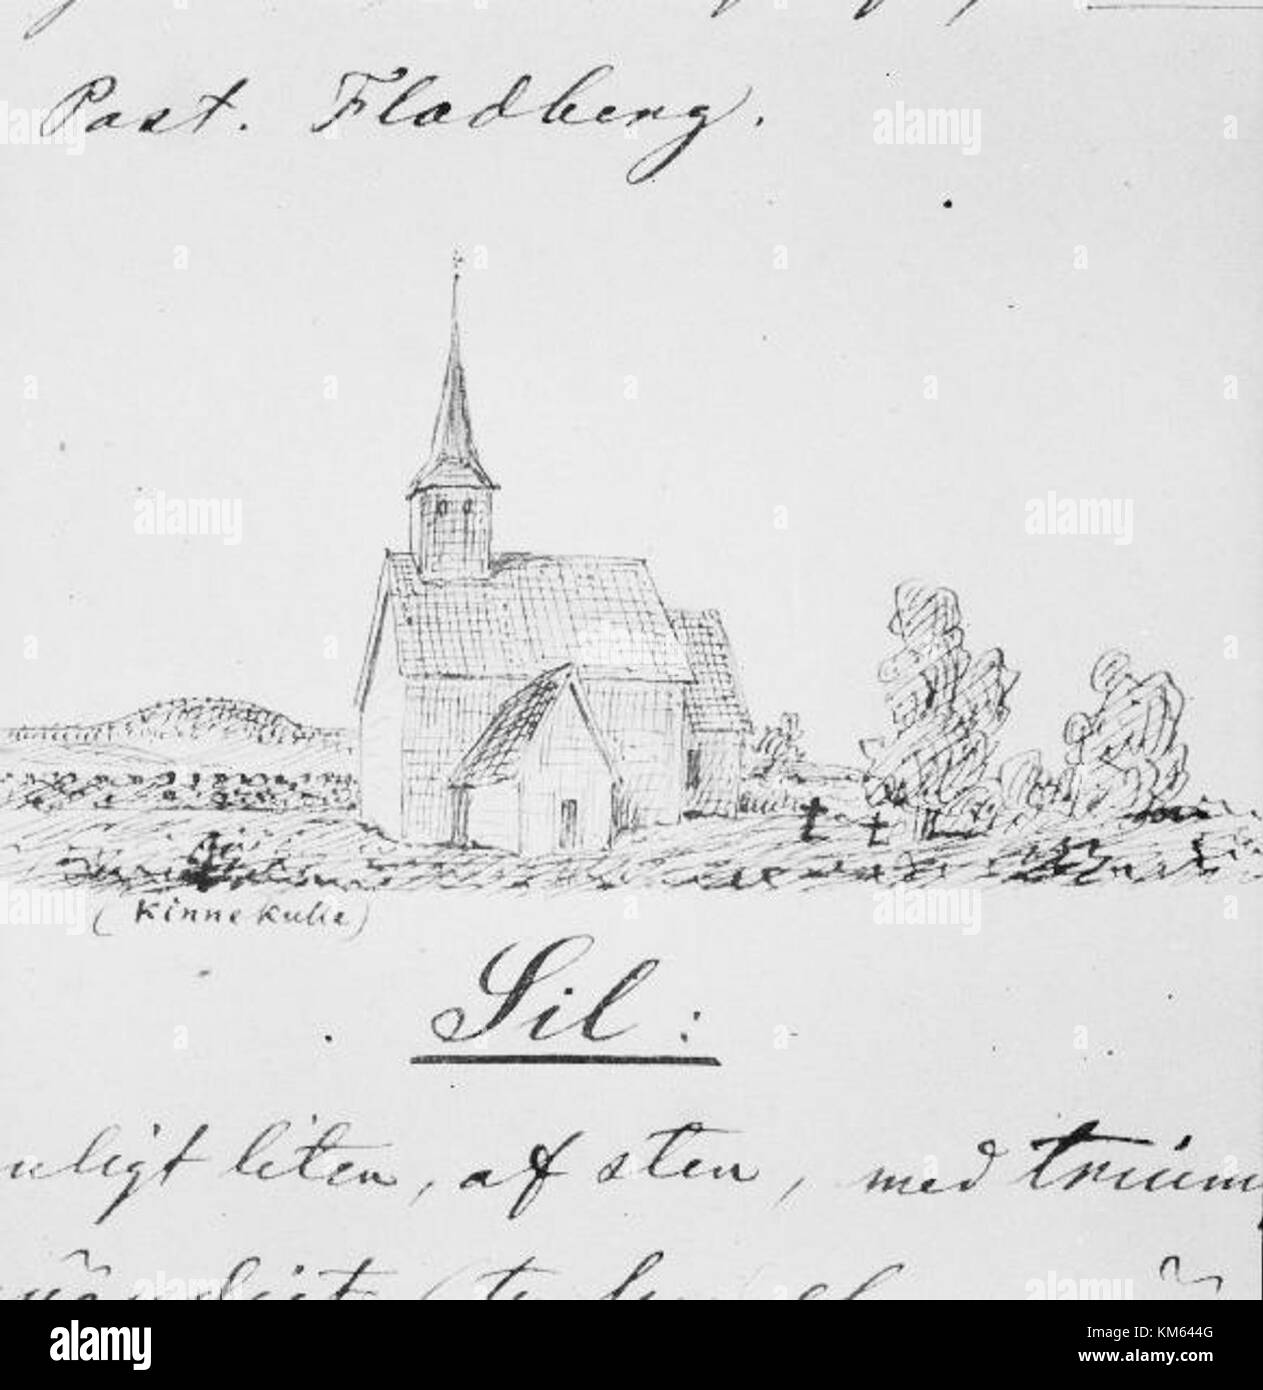 Past. Fladberg.
(Kinnekulle)
Sil:
nligt liten, af sten, med trium
alamy
Image ID: KM644G
www.alamy.com